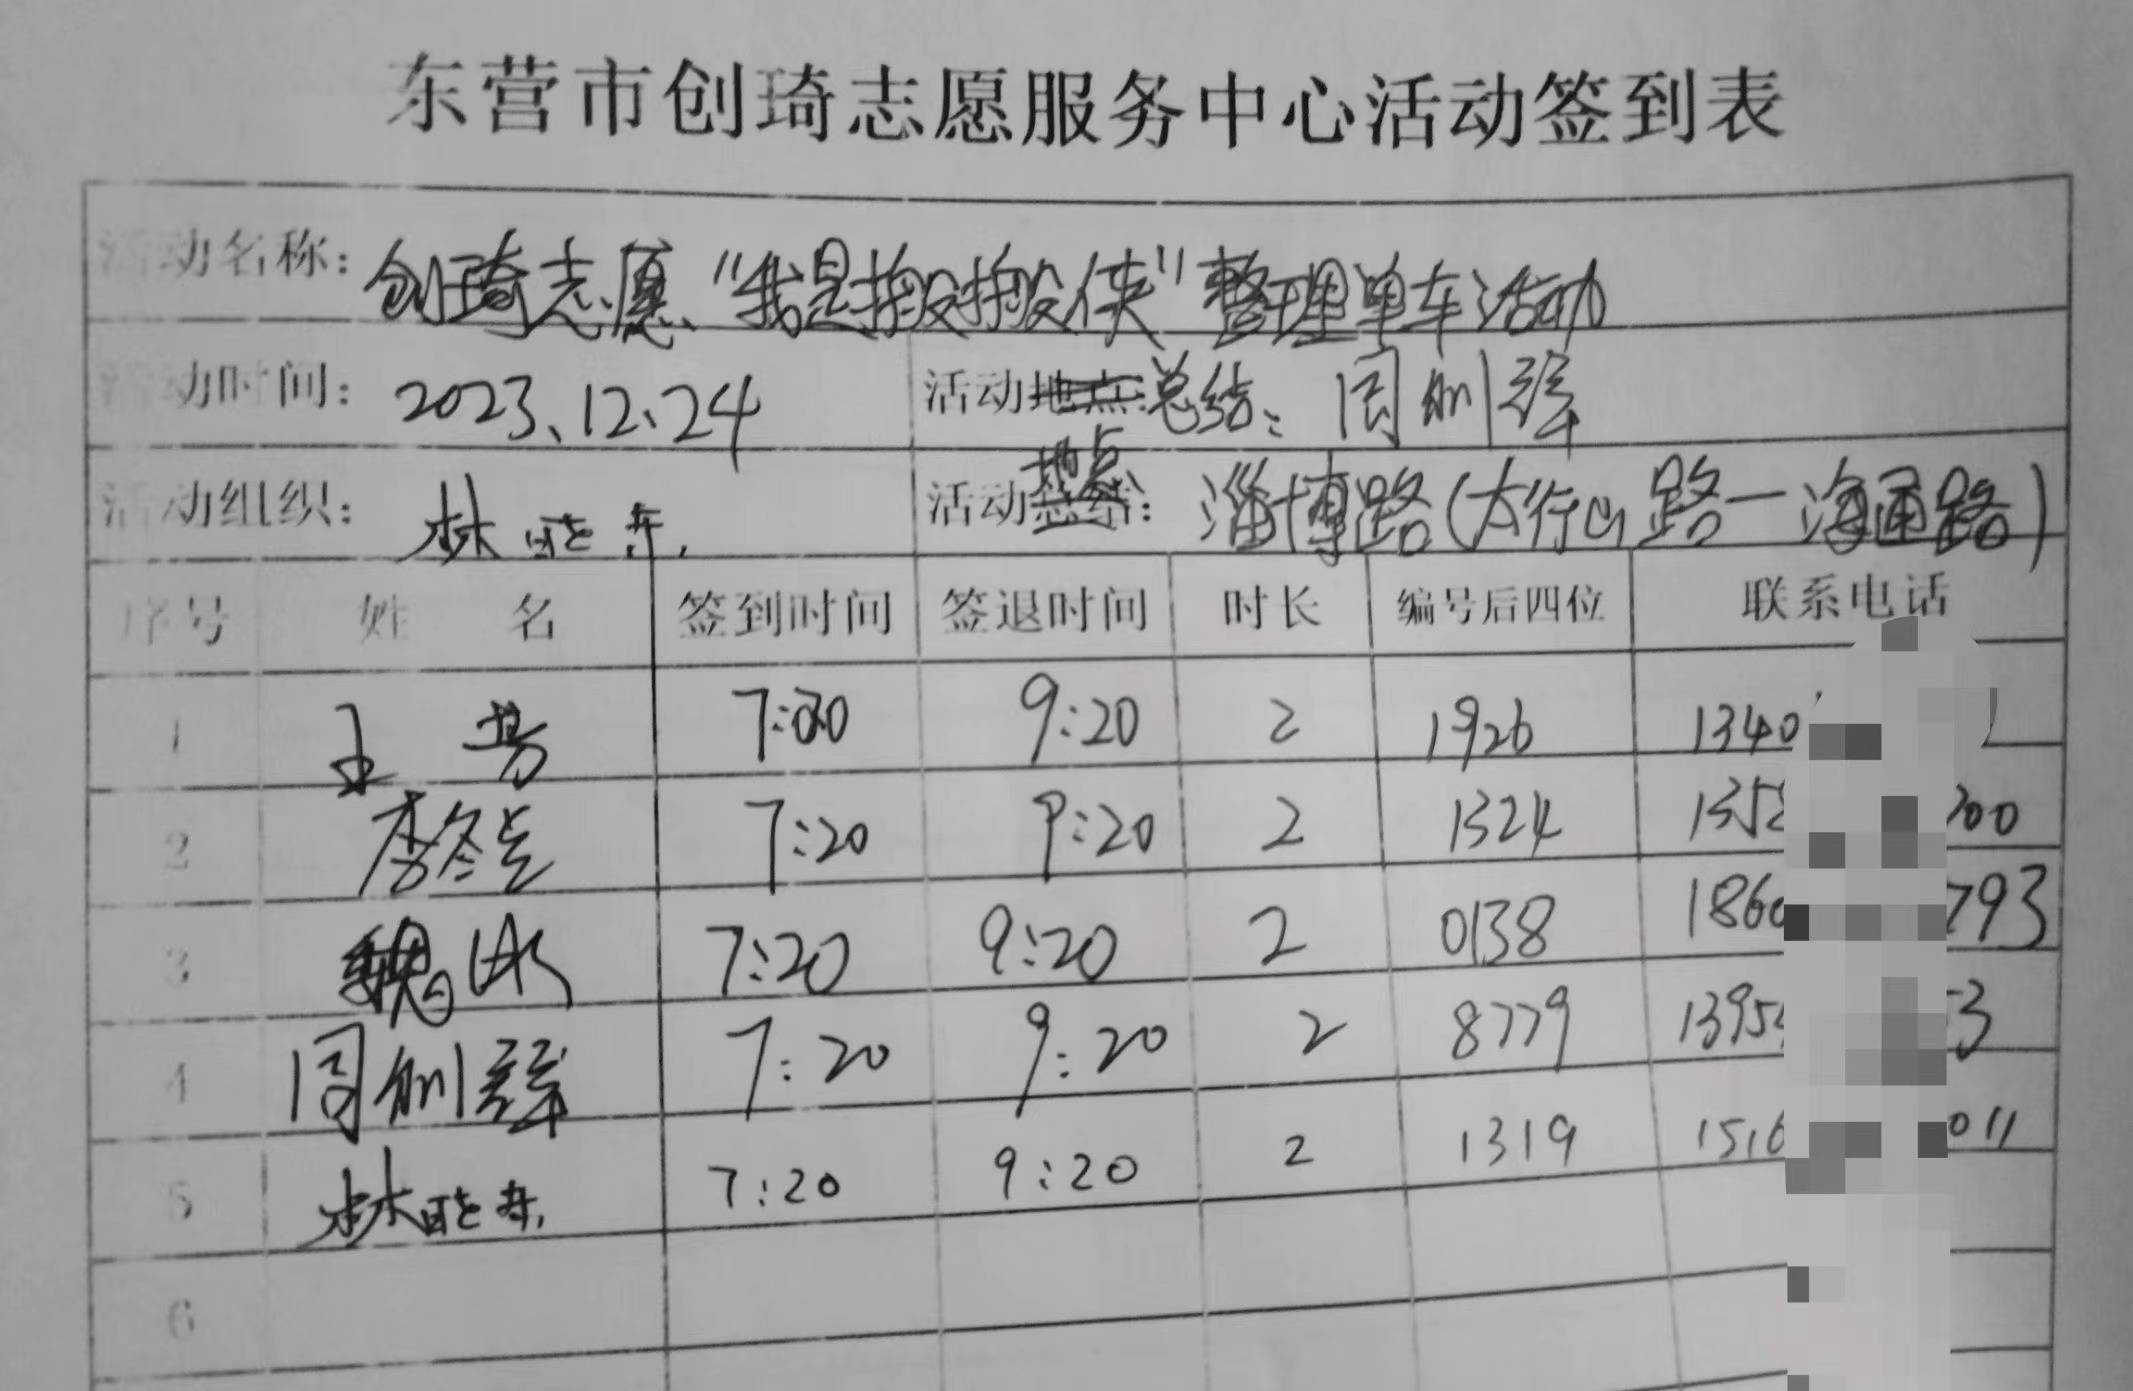 东营市创琦志愿服务中心活动签到表
活动名称: 创琦志愿、"我是搬搬侠"整理单车活动
活动时间: 2023、12、24 活动地点: 总结、周
活动组织: 林晓东 活动总结: 地点 淄博路(太行山路—海通路)
序号 姓 名 签到时间 签退时间 时长 编号后四位 联系电话
1 王 芳 7:20 9:20 2 1926 1340
2 李冬 7:20 9:20 2 1324 135 00
3 魏 7:20 9:20 2 0138 186 793
4 周 7:20 9:20 2 8779 1395 3
5 林晓东 7:20 9:20 2 1319 151 011
6